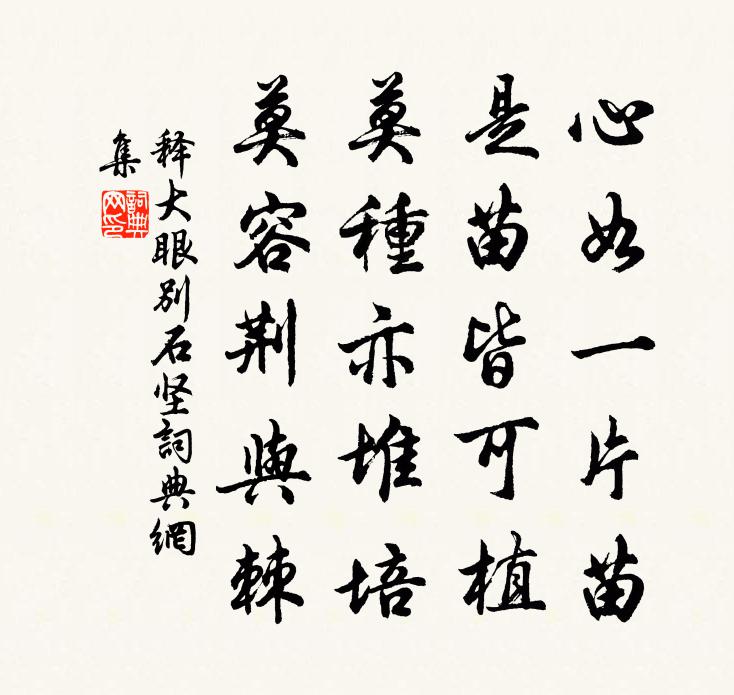 心如一片苗
是苗皆可植
莫種亦堆培
莫容荆與棘
释大眼别石坚詞典網
集
詞典网印